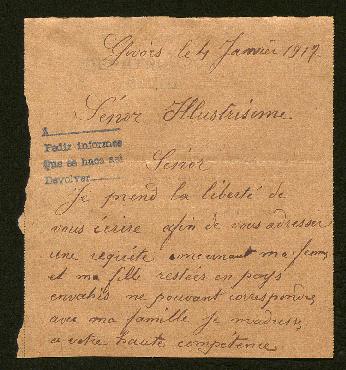 Givors le 4 Janvier 1917
Sénor Illustrisime.
A
Pedir informes
Que se haga asi
Devolver
Sénor
Je prend la liberté de
vous écrire afin de vous adresser
une requête concernant ma femme
et ma fille restées en pays
envahis ne pouvant correspondre
avec ma famille je m'adresse
a votre haute compétence